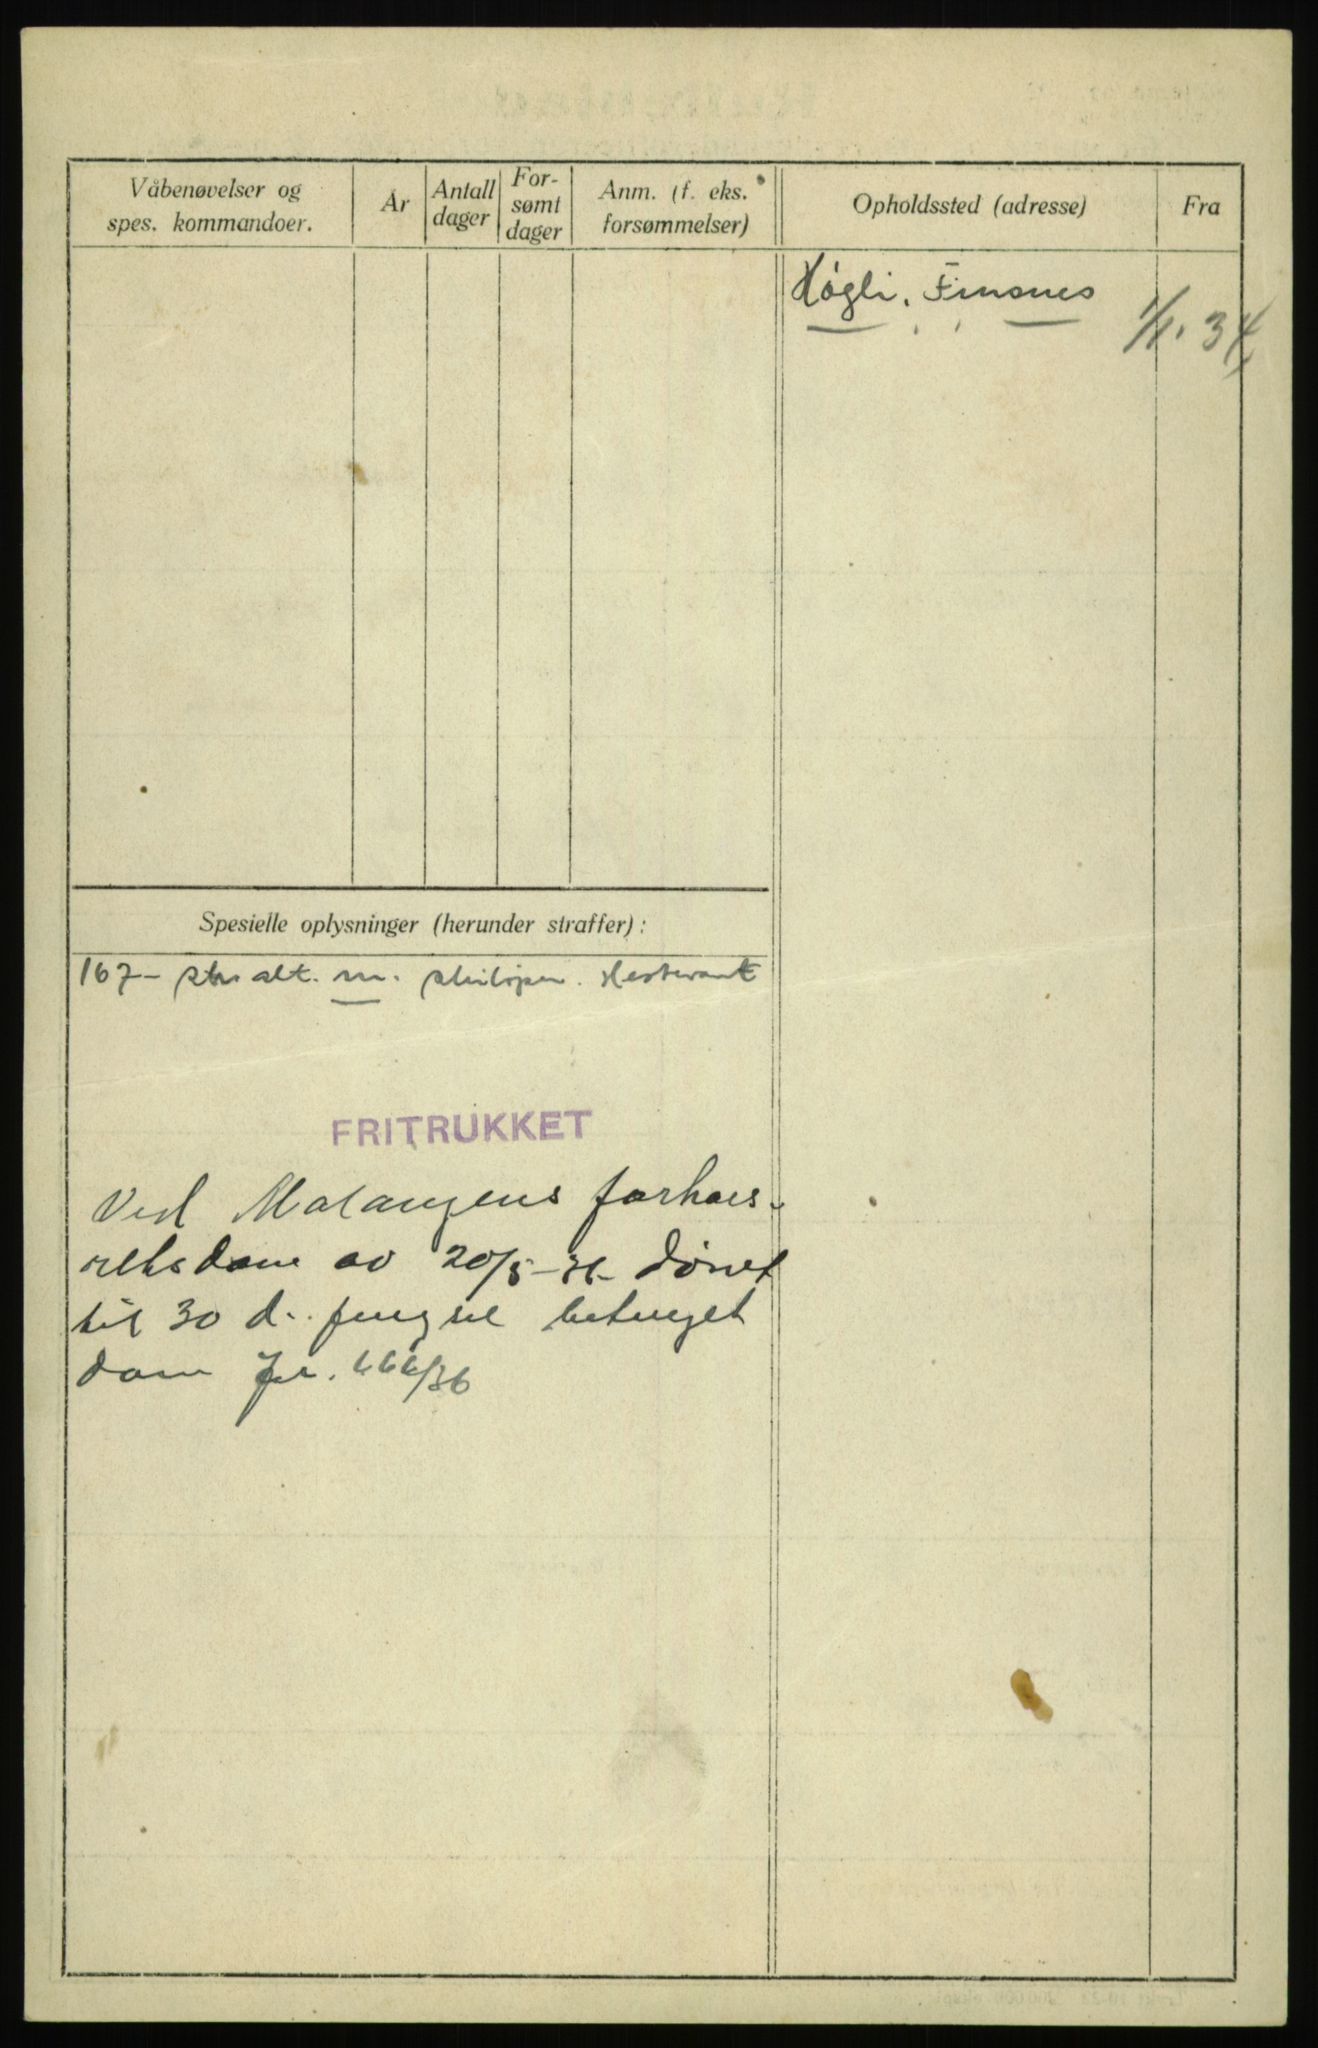 Våbenøvelser og
spes. kommandoer.
År
Antall
dager
For-
sømt
dager
Anm. (f. eks.
forsømmelser)
Opholdssted (adresse)
Fra
Høgli, Finsnes
1/1. 34
Spesielle oplysninger (herunder straffer):
167 – alt. m.
FRITRUKKET
Ved Malangens forhørs-
rettsdom av 20/5-36 dømt
til 30 d. fengsel betinget
dom Jr. 666/36